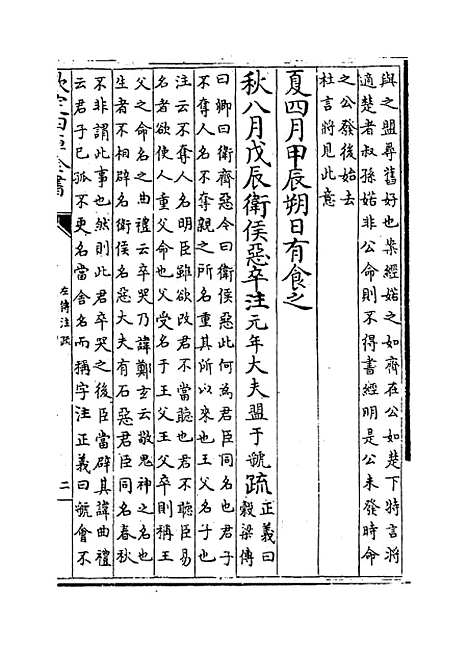 與之盟尋舊好也案經婼之如齊在公如楚下特言將
適楚者叔孫婼非公命則不得書經明是公未發時命
之公發後始去
杜言將見此意
夏四月甲辰朔日有食之
秋八月戊辰衛侯惡卒注元年大夫盟于虢疏正義曰穀梁傳
曰鄉曰衛齊惡今曰衛侯惡此何為君臣同名也君子
不奪人名不奪親之所名重其所以來也王父名子也
注云不奪人名明臣雖欲改君不當聽也君不聽臣易
名者欲使人重父命也父受名于王父王父卒則稱王
父之命名之曲禮云卒哭乃諱鄭玄云敬鬼神之名也
生者不相辟名衛侯名惡大夫有石惡君臣同名春秋
不非謂此事也然則此君卒哭之後臣當辟其諱曲禮
云君子已孤不更名當舍名而稱字注正義曰虢會不
欽定四庫全書
左傳注疏
二